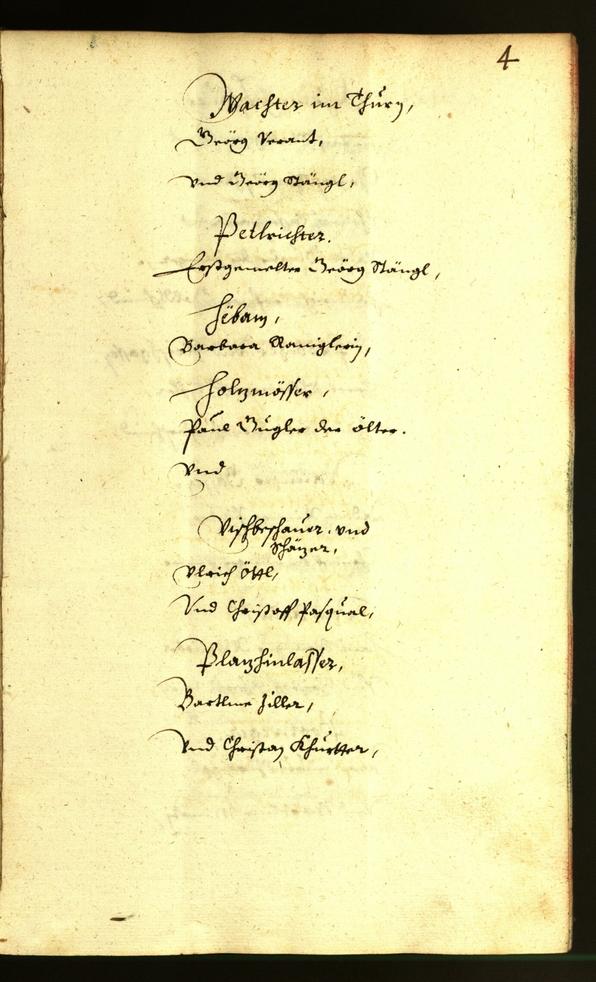 4
Wachter im Thurn,
Geörg Verant,
vnd Geörg Stängl,
Petlrichter.
Erstgemelter Geörg Stängl,
Hëbam,
Barbara Ramglerin,
Holzmösser,
Paul Gugler der ölter.
vnd
Vischbeschauer, vnd
Schäzer,
Vlrich Öttl,
Vnd Christoff Pasqual,
Plazhinlasser,
Bartlme Ziller,
Vnd Christan Khurtter,